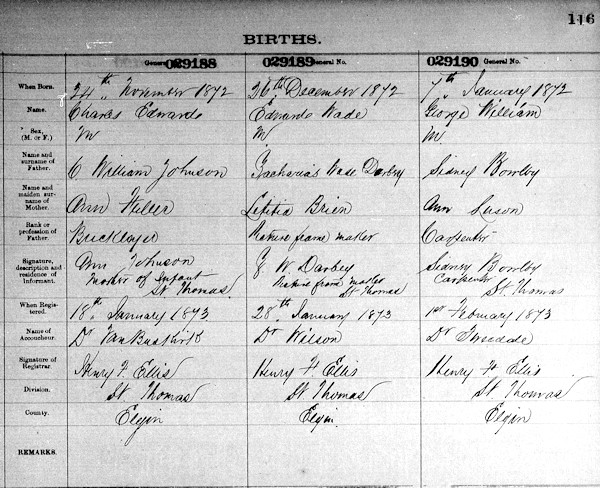 116
BIRTHS.
General No. 029188 029189 General No. 029190 General No.
When Born. 24th November 1872 26th December 1872 7th January 1873
Name. Charles Edward Edward Wade George William
Sex, (M. or F.) M M M
Name and surname of Father. C William Johnson Zacharias Wade Darbey Sidney Bowlby
Name and maiden surname of Mother. Ann Letitia Brien Ann
Rank or profession of Father. Bricklayer Picture frame maker Carpenter
Signature, description and residence of Informant. Ann Johnson Z W Darbey Sidney Bowlby
Mother of Infant Picture frame maker Carpenter
St Thomas St Thomas St Thomas
When Registered. 18th January 1873 28th January 1873 1st February 1873
Name of Accoucheur. Dr Dr Wilson Dr
Signature of Registrar. Henry F Ellis Henry F Ellis Henry F Ellis
Division. St Thomas St Thomas St Thomas
County. Elgin Elgin Elgin
REMARKS.